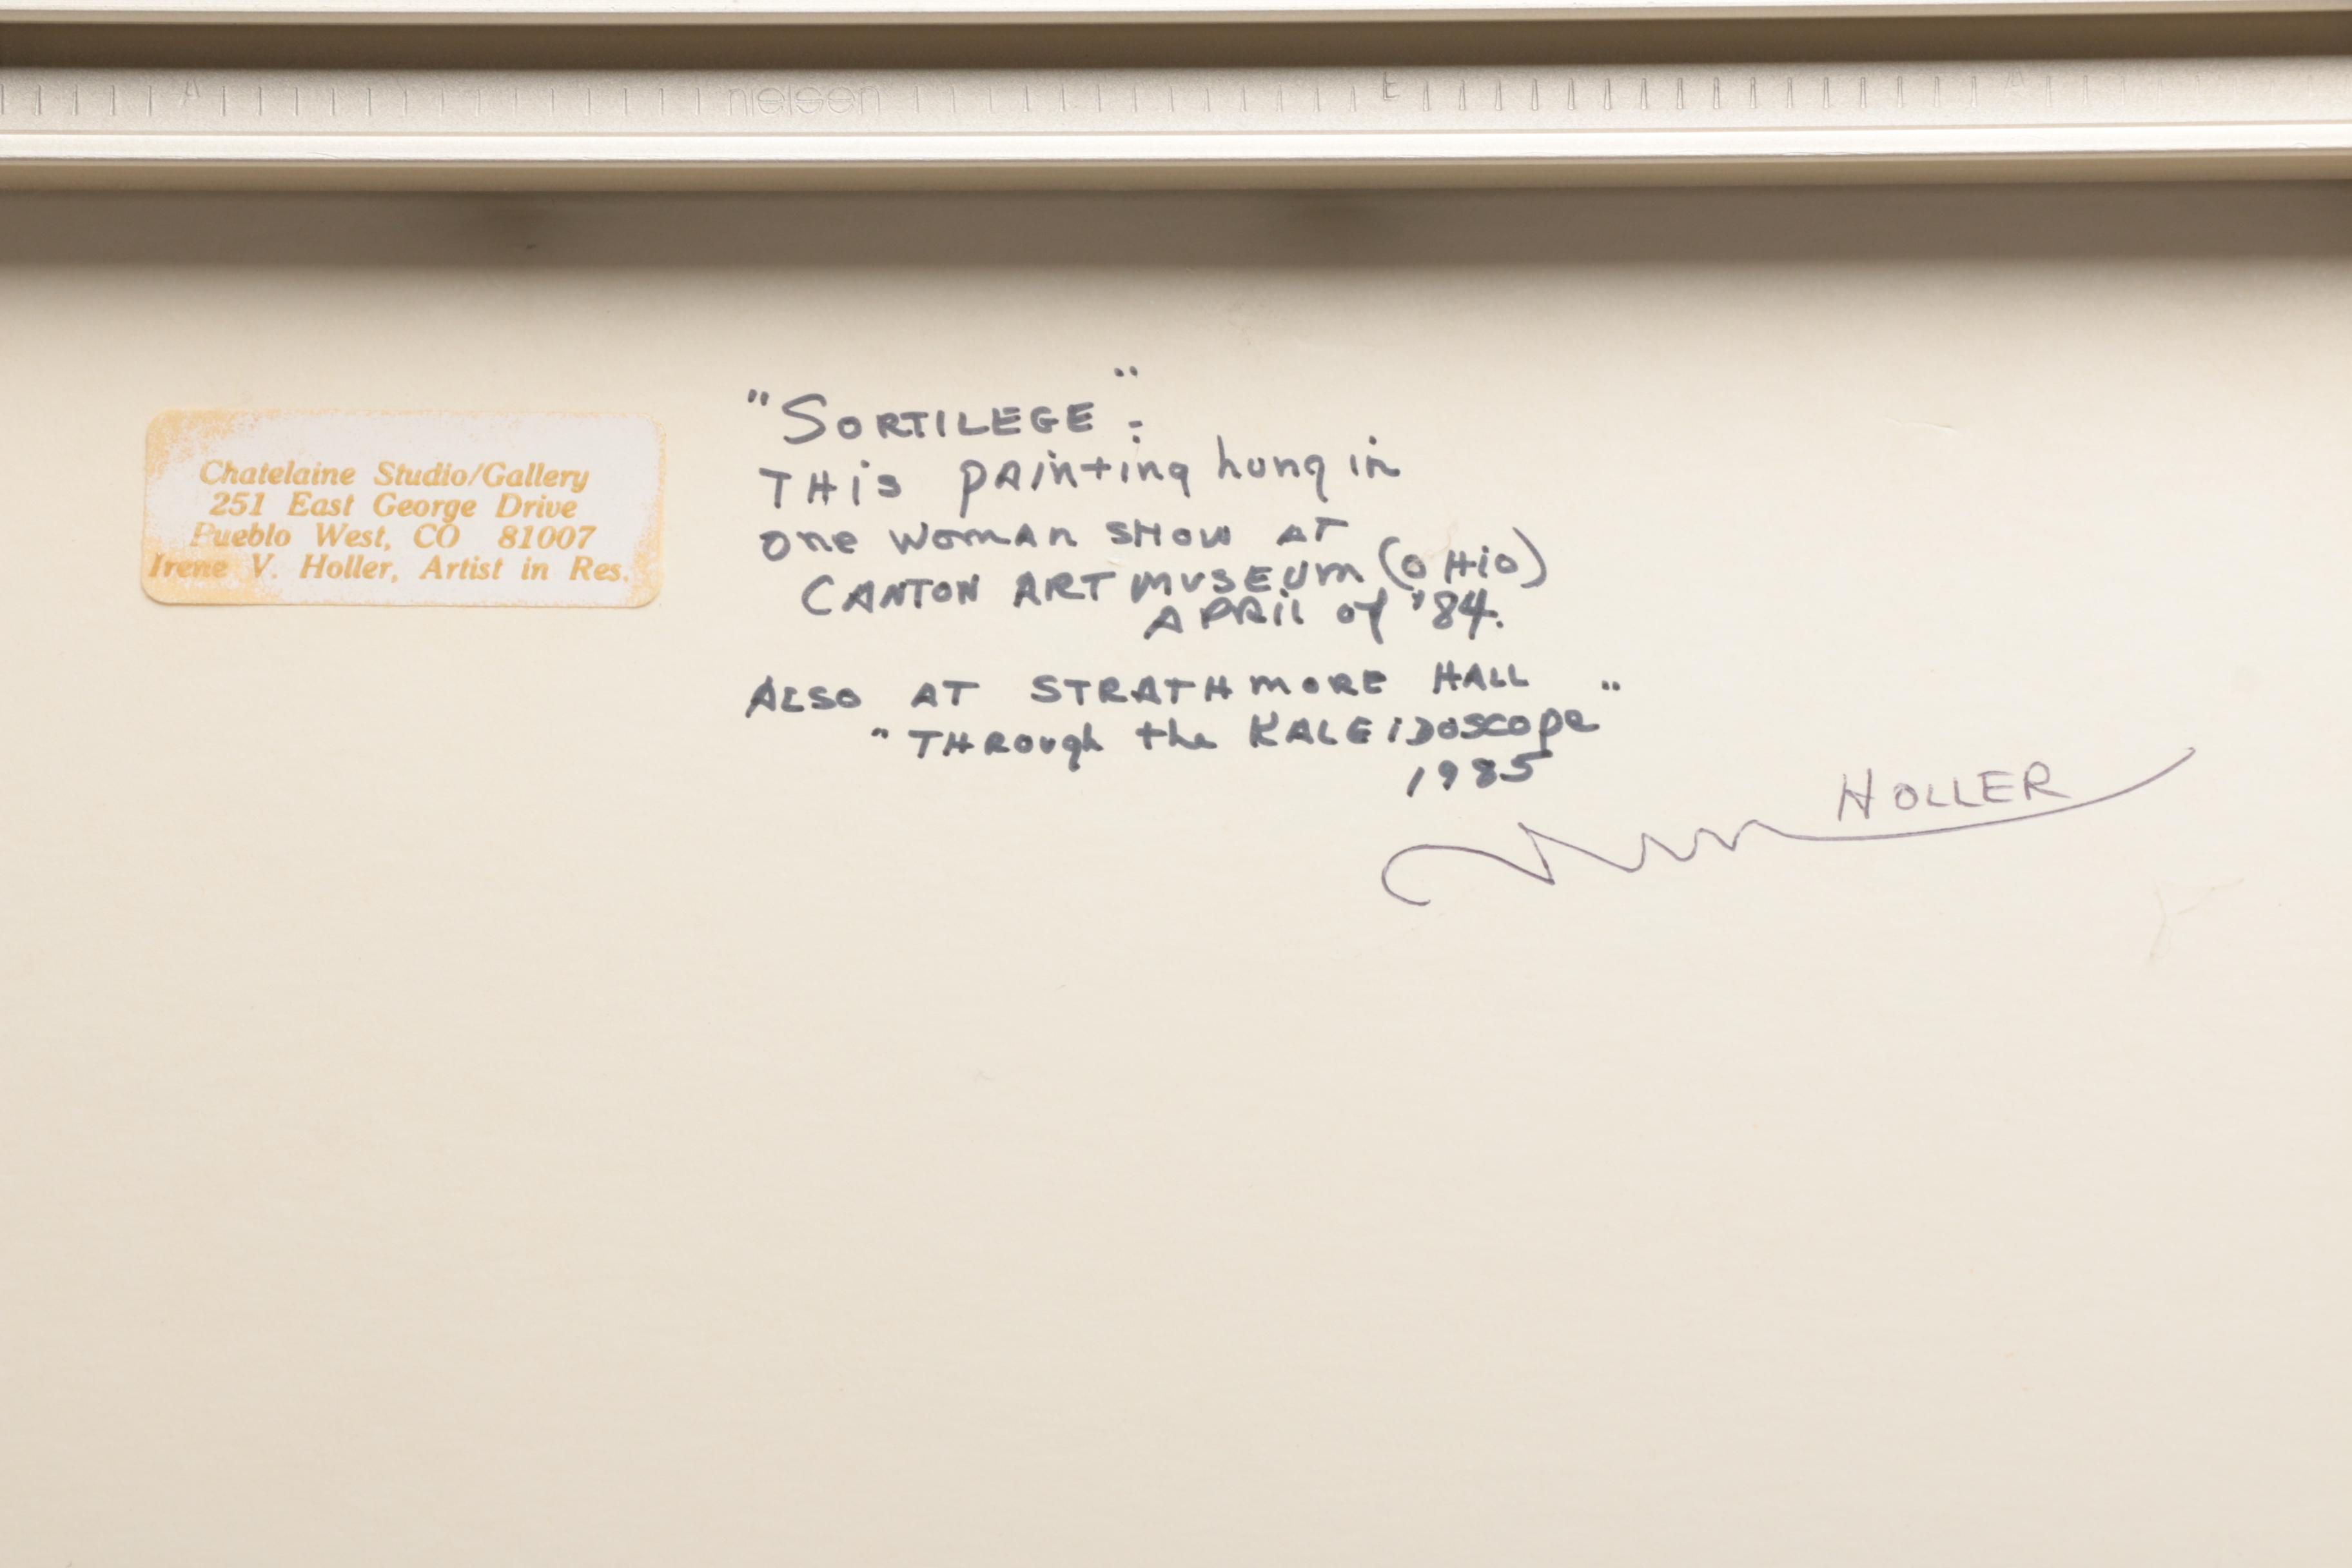 nielsen
Chatelaine Studio/Gallery
251 East George Drive
Pueblo West, CO 81007
Irene V. Holler, Artist in Res.
"SORTILEGE":
THis pAinting hung in
one womAn SHow AT
CANTON ART MUSEUm (OHiO)
APRil of '84.
ALSO AT STRATHmORE HALL
"THRough the KALEiDOSCOpe"
1985
HOLLER